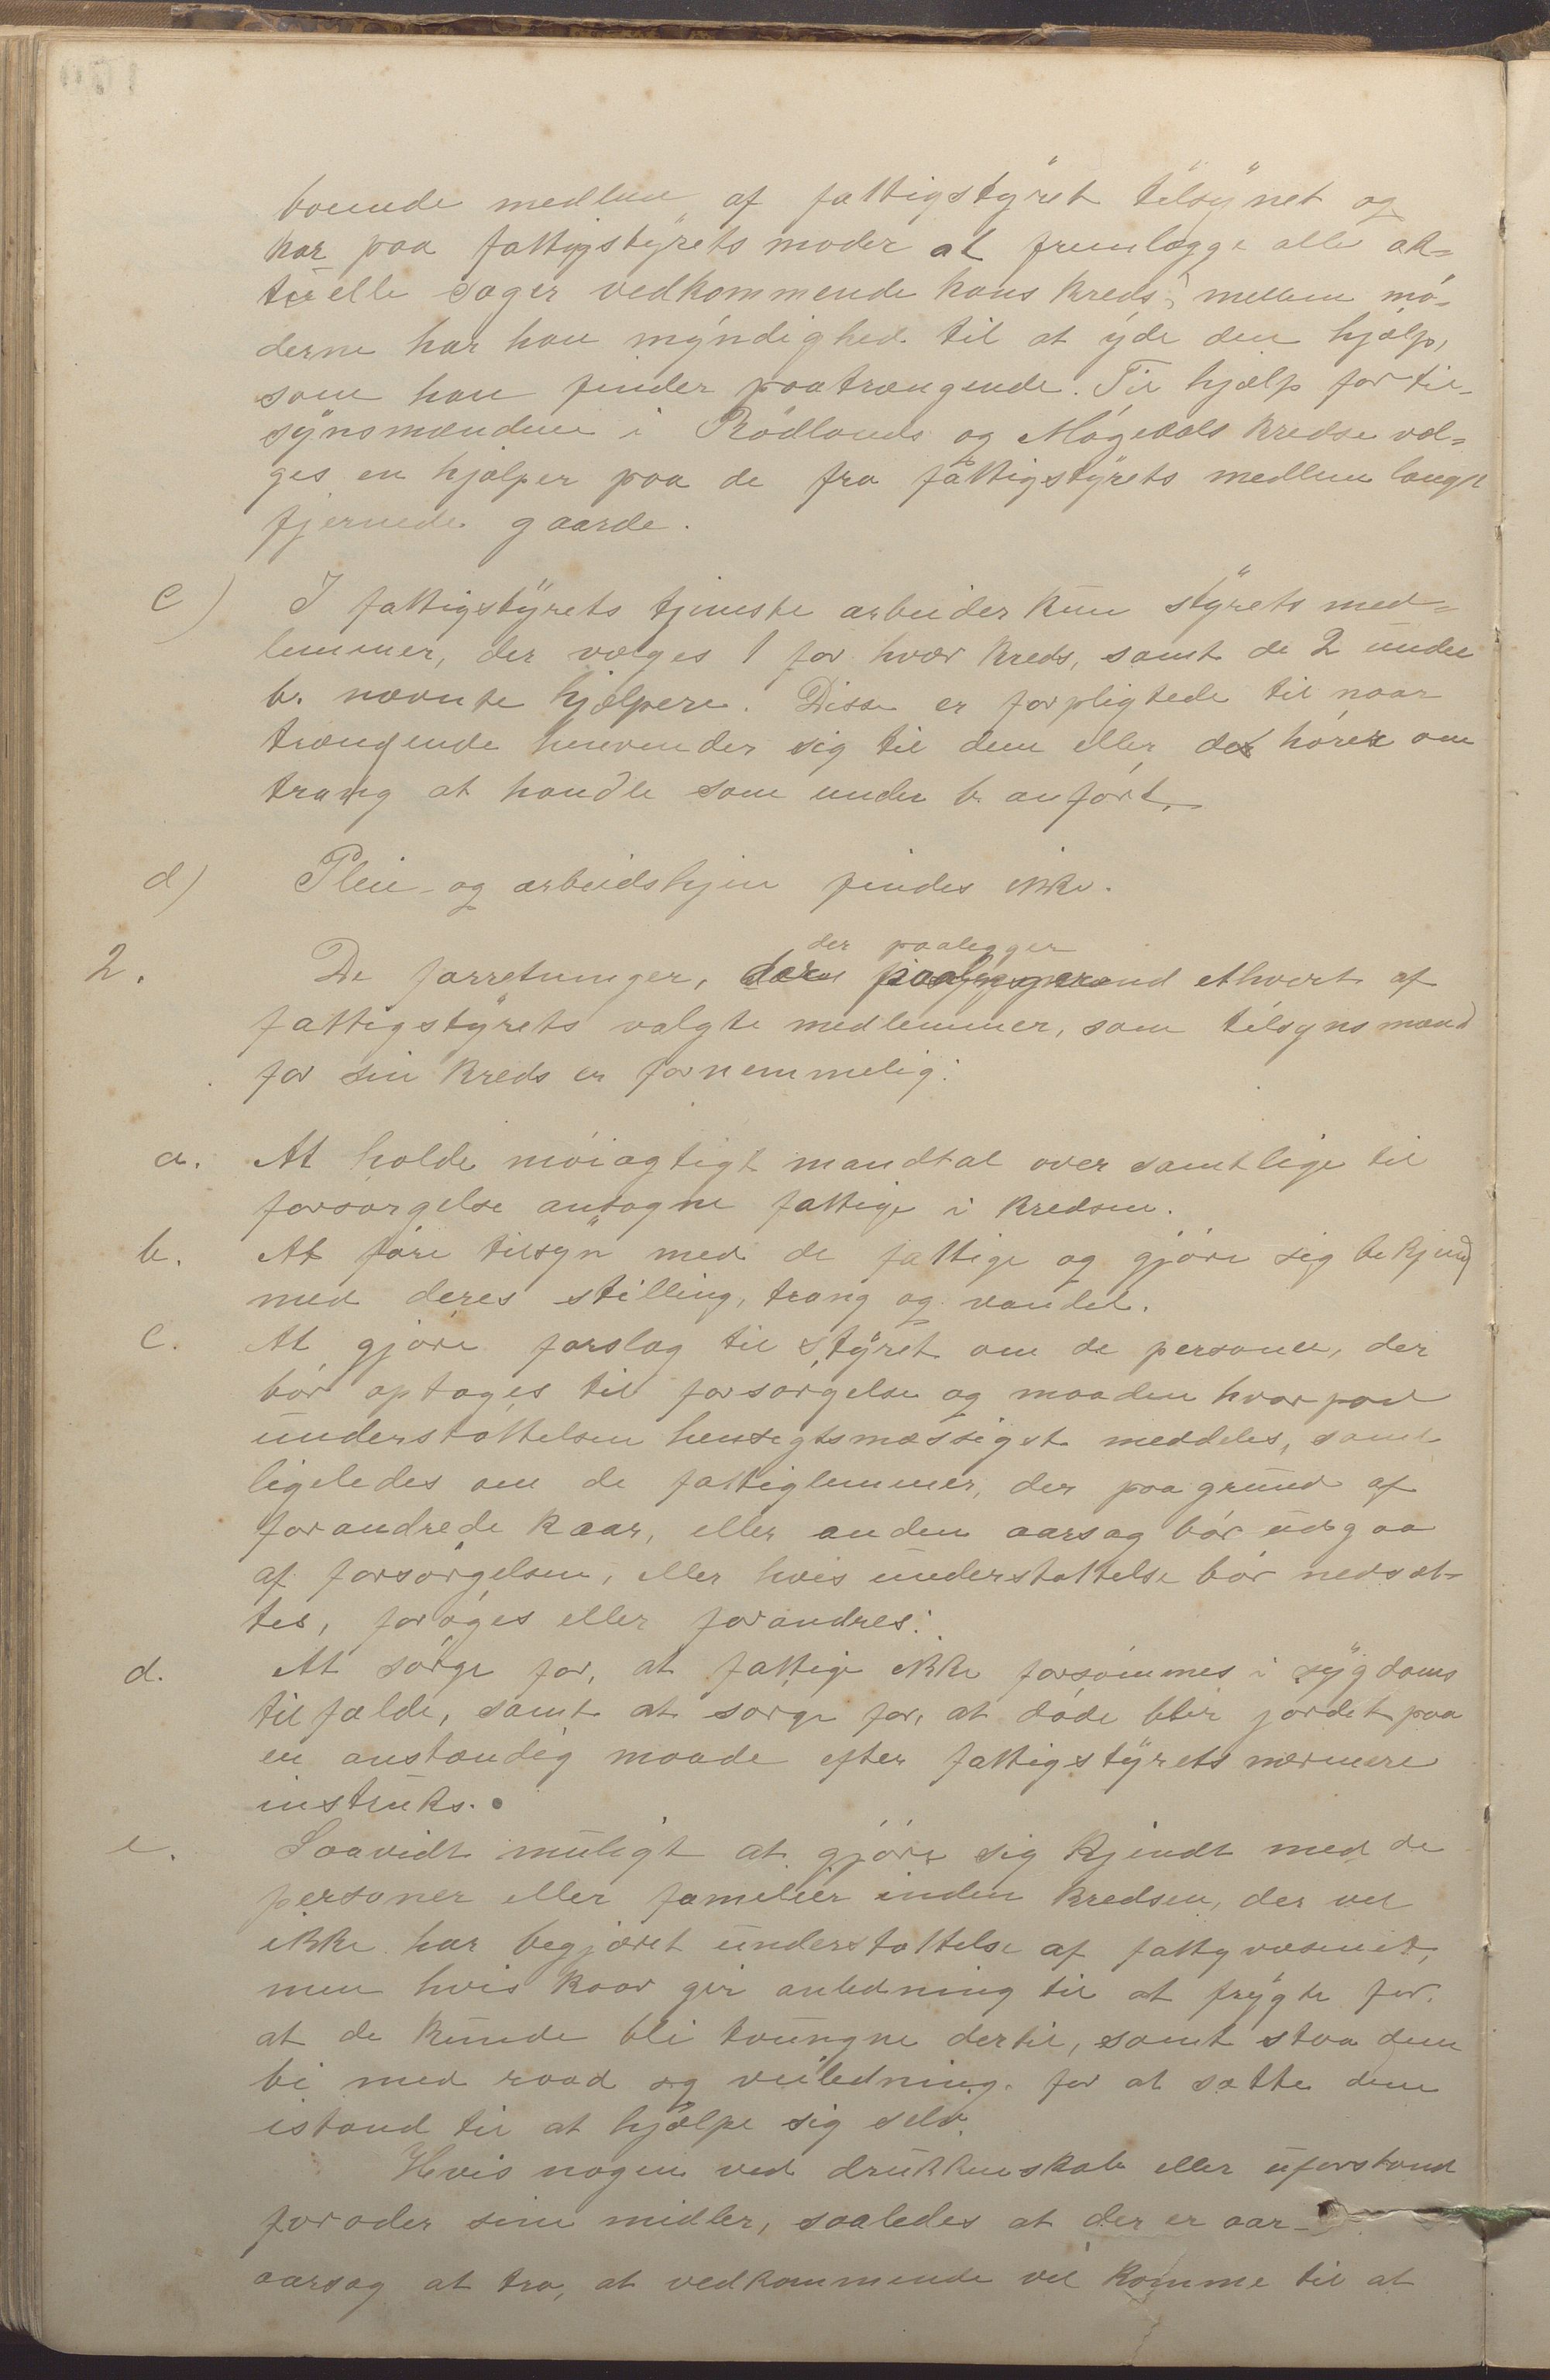 boende medlem af fattigstyret tilsynet og
har paa fattigstyrets møder at fremlægge alle ak-
tuelle sager vedkommende hans kreds; mellem mø-
derne har han myndighed til at yde den hjælp,
som han finder paatrængende. Til hjælp for til-
synsmændene i Rødlands og Møgedals kredse væl-
ges en hjælper paa de fra fattigstyrets medlem langt
fjernede gaarde.
c) I fattigstyrets tjeneste arbeider kun styrets med-
lemmer, der vælges 1 for hver kreds, samt de 2 under
b. nævnte hjælpere. Disse er forpligtede til naar
trængende henvender sig til dem eller de hører om
trang at handle som under b. anført.
d) Pleie- og arbeidshjem findes ikke.
der paalegger
2. De forretninger, ethvert af
fattigstyrets valgte medlemmer, som tilsynsmænd
for sin kreds er fornemmelig:
a. At holde nøiagtigt mandtal over samtlige til
forsørgelse antagne fattige i kredsen.
b. At føre tilsyn med de fattige og gjøre sig bekjend
med deres stilling, trang og vandel.
c. At gjøre forslag til styret om de personer, der
bør optages til forsørgelse og maaden hvorpaa
understøttelsen hensigtsmæssigst meddeles, samt
ligeledes om de fattiglemmer, der paa grund af
forandrede kaar, eller anden aarsag bør udgaa
af forsørgelsen, eller hvis understøttelse bør nedsæt-
tes, forøges eller forandres.
d. At sørge for, at fattige ikke forsømmes i sygdoms
tilfælde, samt at sørge for, at døde blir jordet paa
en anstændig maade efter fattigstyrets nærmere
instruks.
e. Saavidt muligt at gjøre sig kjendt med de
personer eller familier inden kredsen, der vel
ikke har begjæret understøttelse af fattigvæsenet,
men hvis kaar gir anledning til at frygte for.
at de kunde bli tvungne dertil, samt staa dem
bi med raad og veiledning. for at sætte dem
istand til at hjælpe sig selv.
Hvis nogen ved drukkenskab eller uforstand
forøder sine midler, saaledes at der er aar-
aarsag at tro, at vedkommende vil komme til at